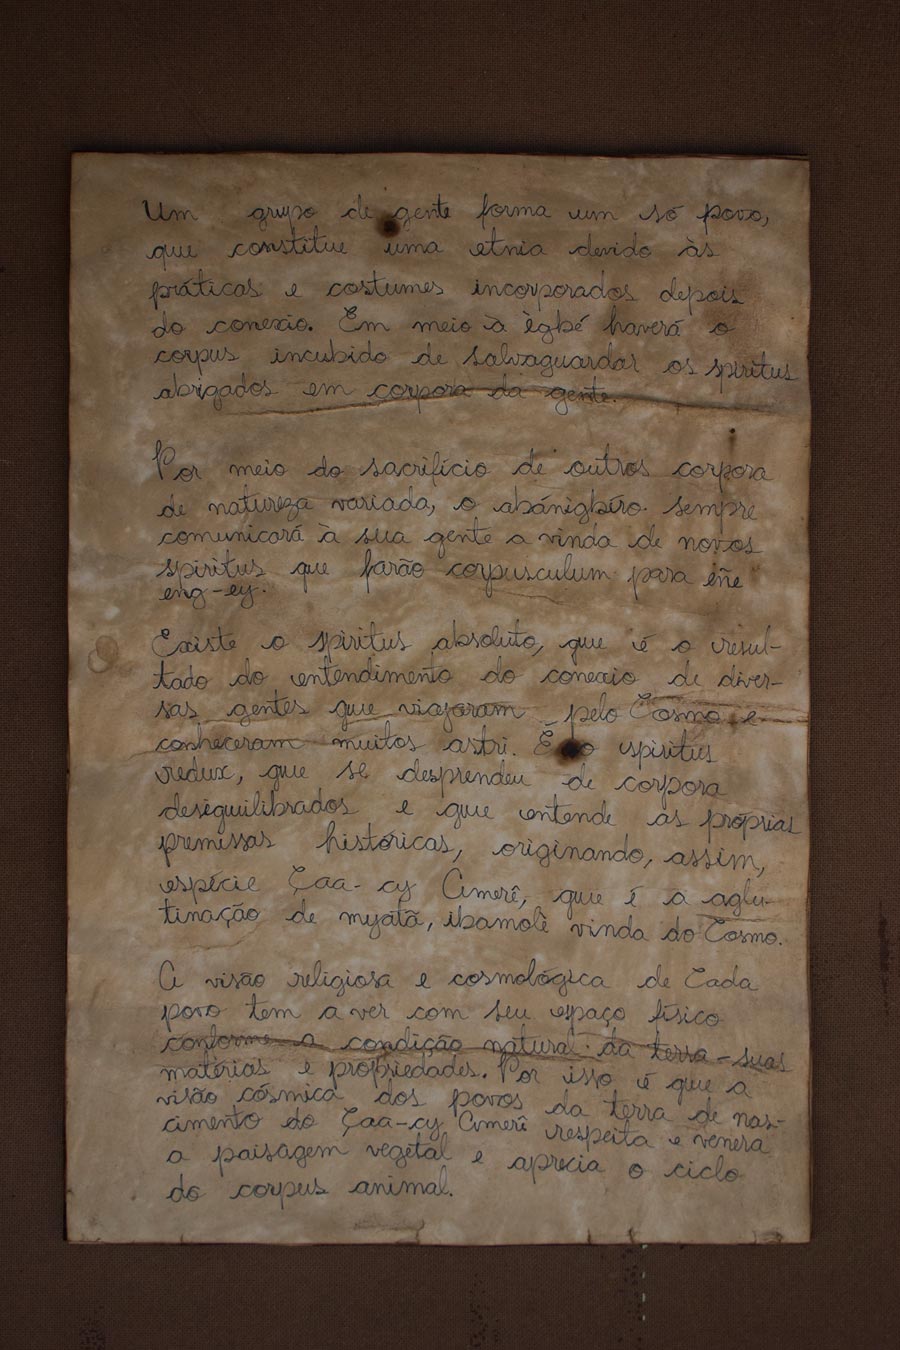 Um grupo de gente forma um só povo,
que constitue uma etnia devido às
práticas e costumes incorporados depois
do conexio. Em meio à ègbé haverá o
corpus incubido de salvaguardar os spiritus
abrigados em corpora da gente.
Por meio do sacrifício de outros corpora
de natureza variada, o abánigbíro sempre
comunicará à sua gente a vinda de novos
spiritus que farão corpusculum para eñe
eng-ey.
Existe o spiritus absoluto, que é o resul-
tado do entendimento do conexio de diver-
sas gentes que viajaram pelo Cosmo e
conheceram muitos astri. E o spiritus
redux, que se desprendeu de corpora
desiquilibrados e que entende as próprias
premissas históricas, originando, assim,
espécie Çaa-cy Amerê, que é a aglu-
tinação de myatã, ibamolè vinda do Cosmo.
A visão religiosa e cosmológica de Cada
povo tem a ver com seu espaço físico
conforme a condição natural da terra - suas
matérias e propriedades. Por isso é que a
visão cósmica dos povos da terra de nas-
cimento do Çaa-cy Amerê respeita e venera
a paisagem vegetal e aprecia o ciclo
do corpus animal.